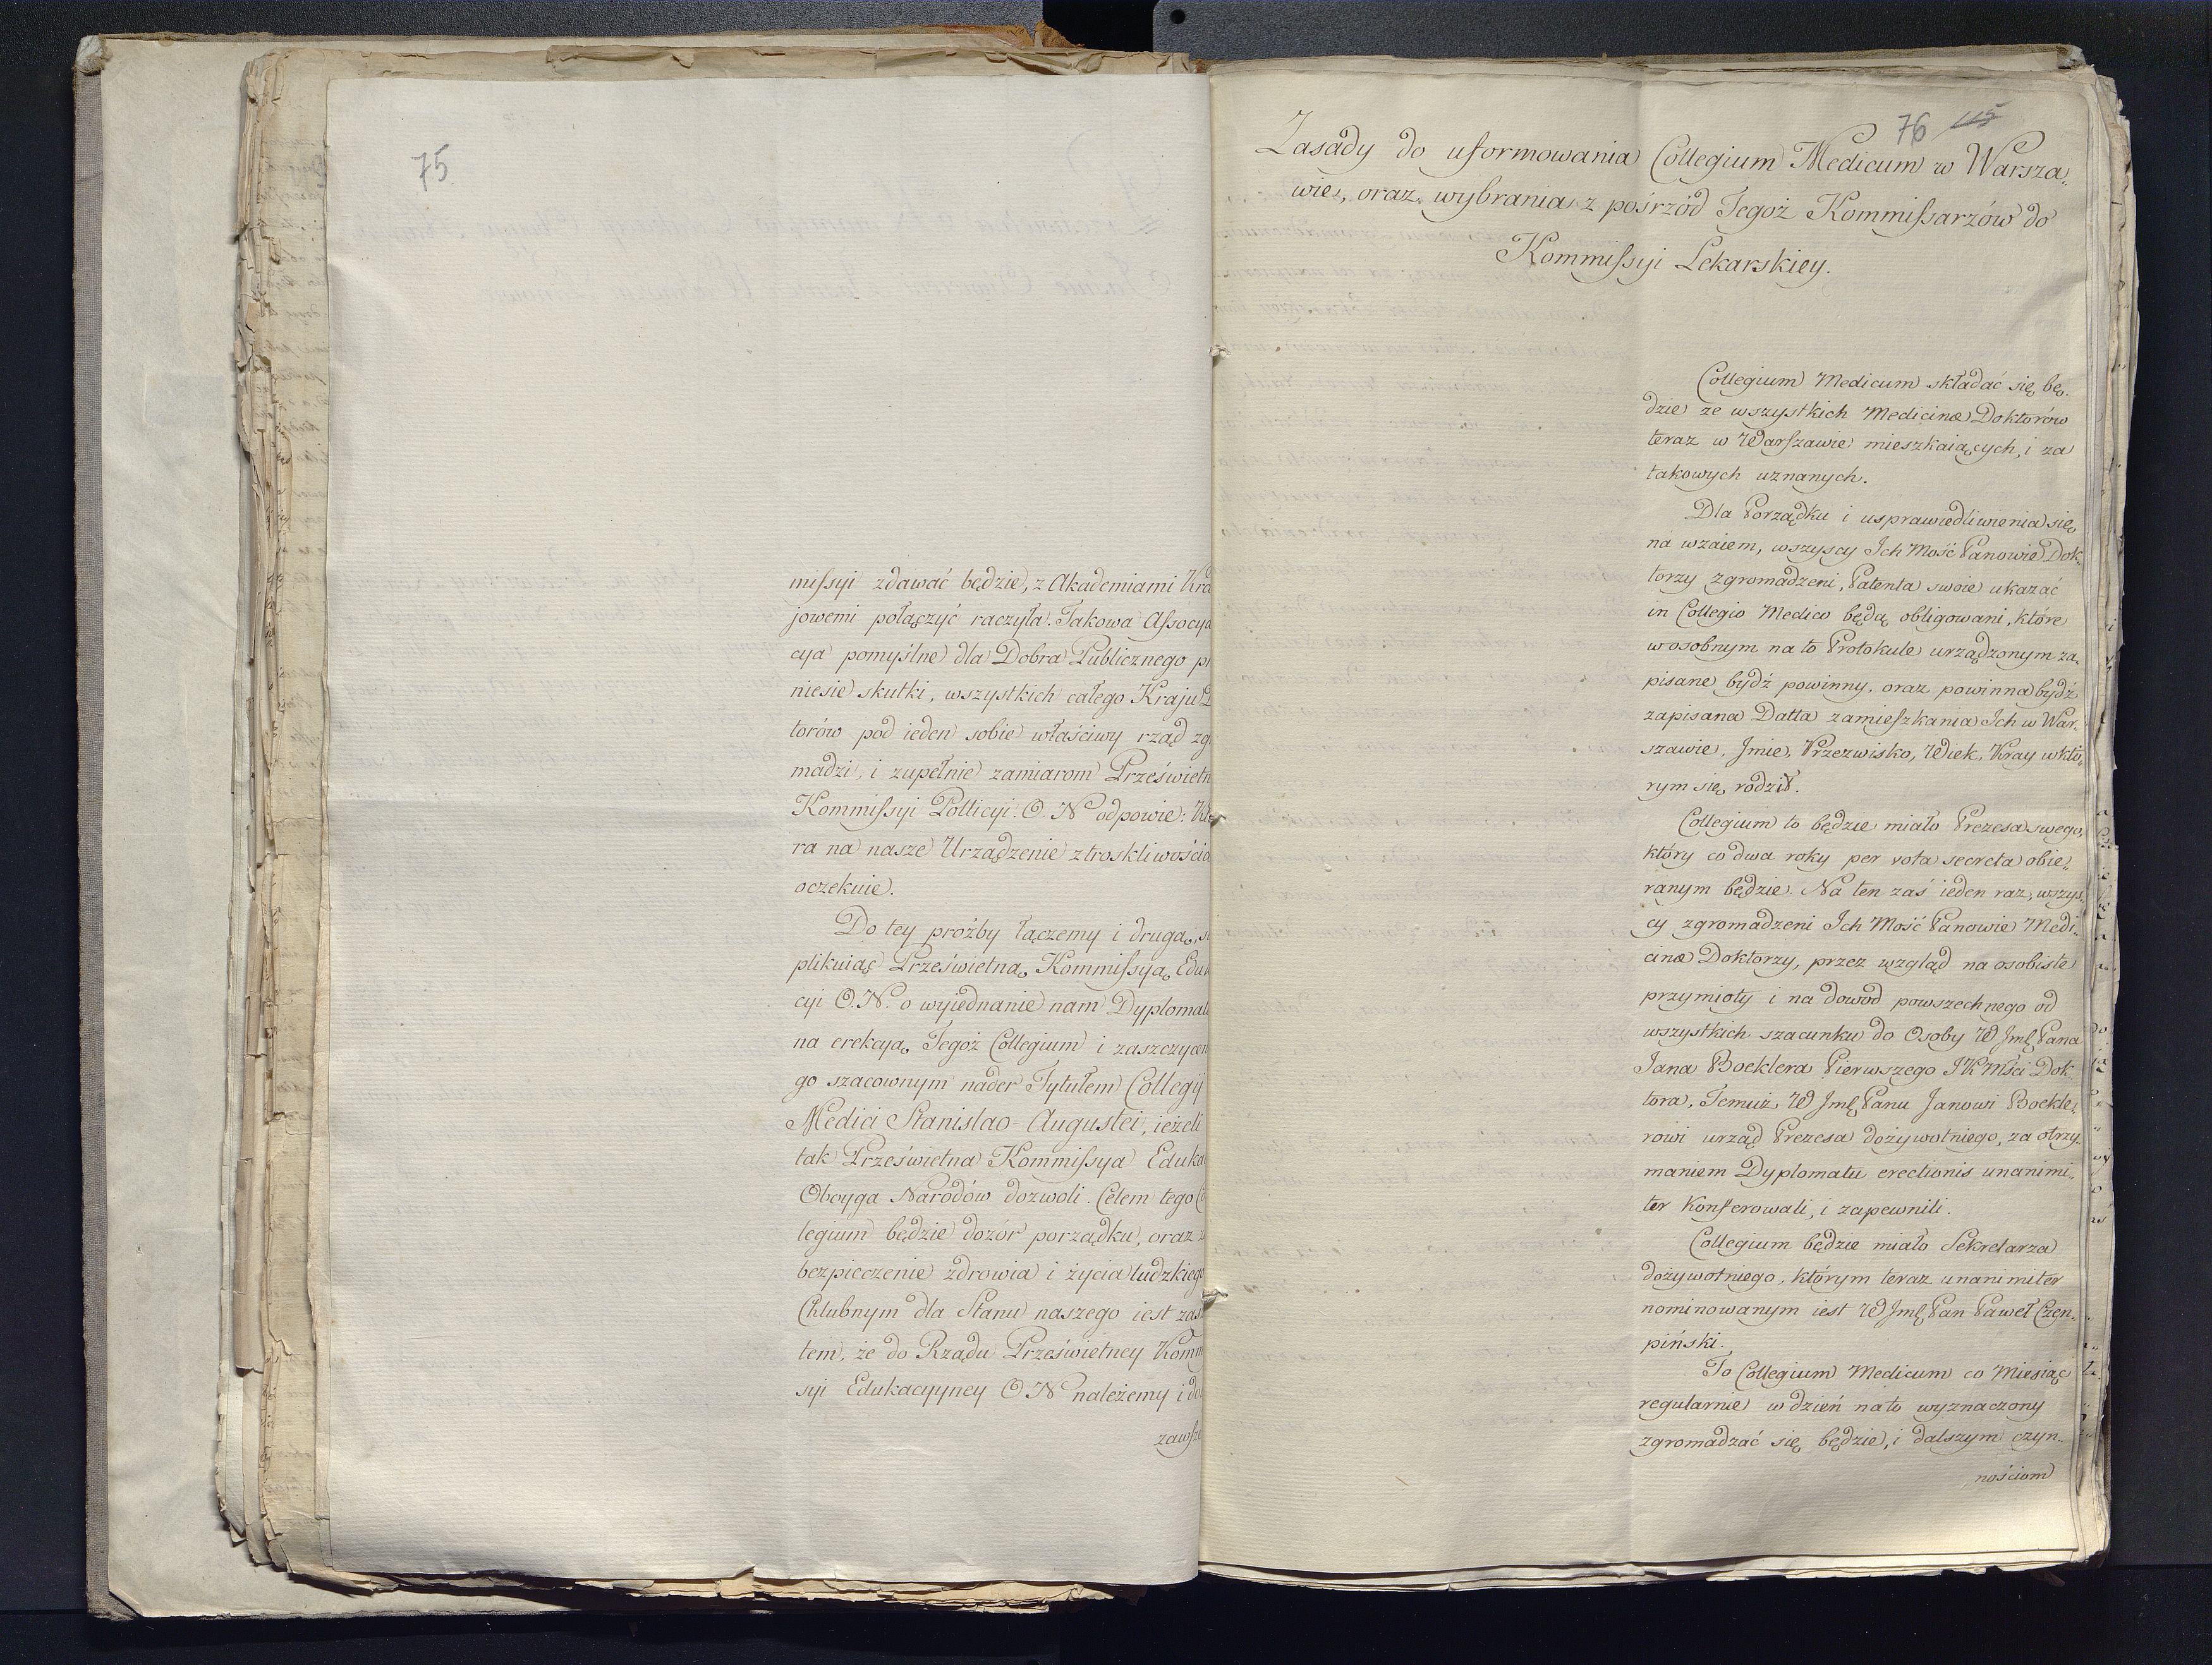 75
missyi zdawać będzie, z Akademiami Kra
jowemi połączyć raczyła. Takowa Assocya
cya pomyślne dla Dobra Publicznego
niesie skutki, wszystkich całego Kraju
torów pod ieden sobie właściwy rząd
madzi, i zupełnie zamiarom Prześwietn
Kommissyi Pollicyi. O. N odpowie:
ra na nasze Urządzenie z troskliwością
oczekuie.
Do tey prośby łączemy i drugą,
plikuiąc Prześwietną Kommissyą Edu
cyi O. N. o wyjednanie nam Dyplomat
na erekcyą Tegoż Collegium i zaszczycen
go szacownym nader Tytułem Collegij
Medici Stanislao-Augustei, ieżeli
tak Prześwietna Kommissya Eduka
Oboyga Narodów dozwoli. Celem tego
legium będzie dozór porządku, oraz
bezpieczenie zdrowia i życia ludzkiego
Chlubnym dla Stanu naszego iest
tem, że do Rządu Prześwietney Komm
syi Edukacyyney O N należemy i
zawsze
76 115
Zasady do uformowania Collegium Medicum w Warsza„
wie, oraz wybrania z pośrzód Tegoż Kommissarzów do
Kommissyi Lekarskiey.
Collegium Medicum składać się bę„
dzie ze wszystkich Medicinæ Doktorów
teraz w Warszawie mieszkaiących, i za
takowych uznanych.
Dla Porządku i usprawiedliwienia się
na wzaiem, wszyscy Ich Mość Panowie Dok„
torzy zgromadzeni, Patenta swoie ukazać
in Collegio Medico będą obligowani, które
w osobnym na to Protokule urządzonym za„
pisane bydź powinny, oraz powinna bydź
zapisana Datta zamieszkania Ich w War„
szawie, Jmie, Przezwisko, Wiek, Kray w któ„
rym się rodził.
Collegium to będzie miało Prezesa swego,
który co dwa roky per vota secreta obie„
ranym będzie. Na ten zaś ieden raz, wszys„
cy zgromadzeni Ich Mość Panowie Medi„
cinæ Doktorzy, przez wzgląd na osobiste
przymioty i na dowód powszechnego od
wszystkich szacunku do Osoby W Jmć Pana
Jana Boeklera Pierwszego JK Mści Dok„
tora, Temuż W Jmć Panu Janowi Boekle„
rowi urząd Prezesa dożywotniego, za otrzy„
maniem Dyplomatu erectionis unanimi„
ter konferowali, i zapewnili.
Collegium będzie miało Sekretarza
dożywotniego, którym teraz unanimiter
nominowanym iest W Jmć Pan Paweł Czen„
piński.
To Collegium Medicum co Miesiąc
regularnie w dzień na to wyznaczony
zgromadzać się będzie, i dalszym czyn„
nościom